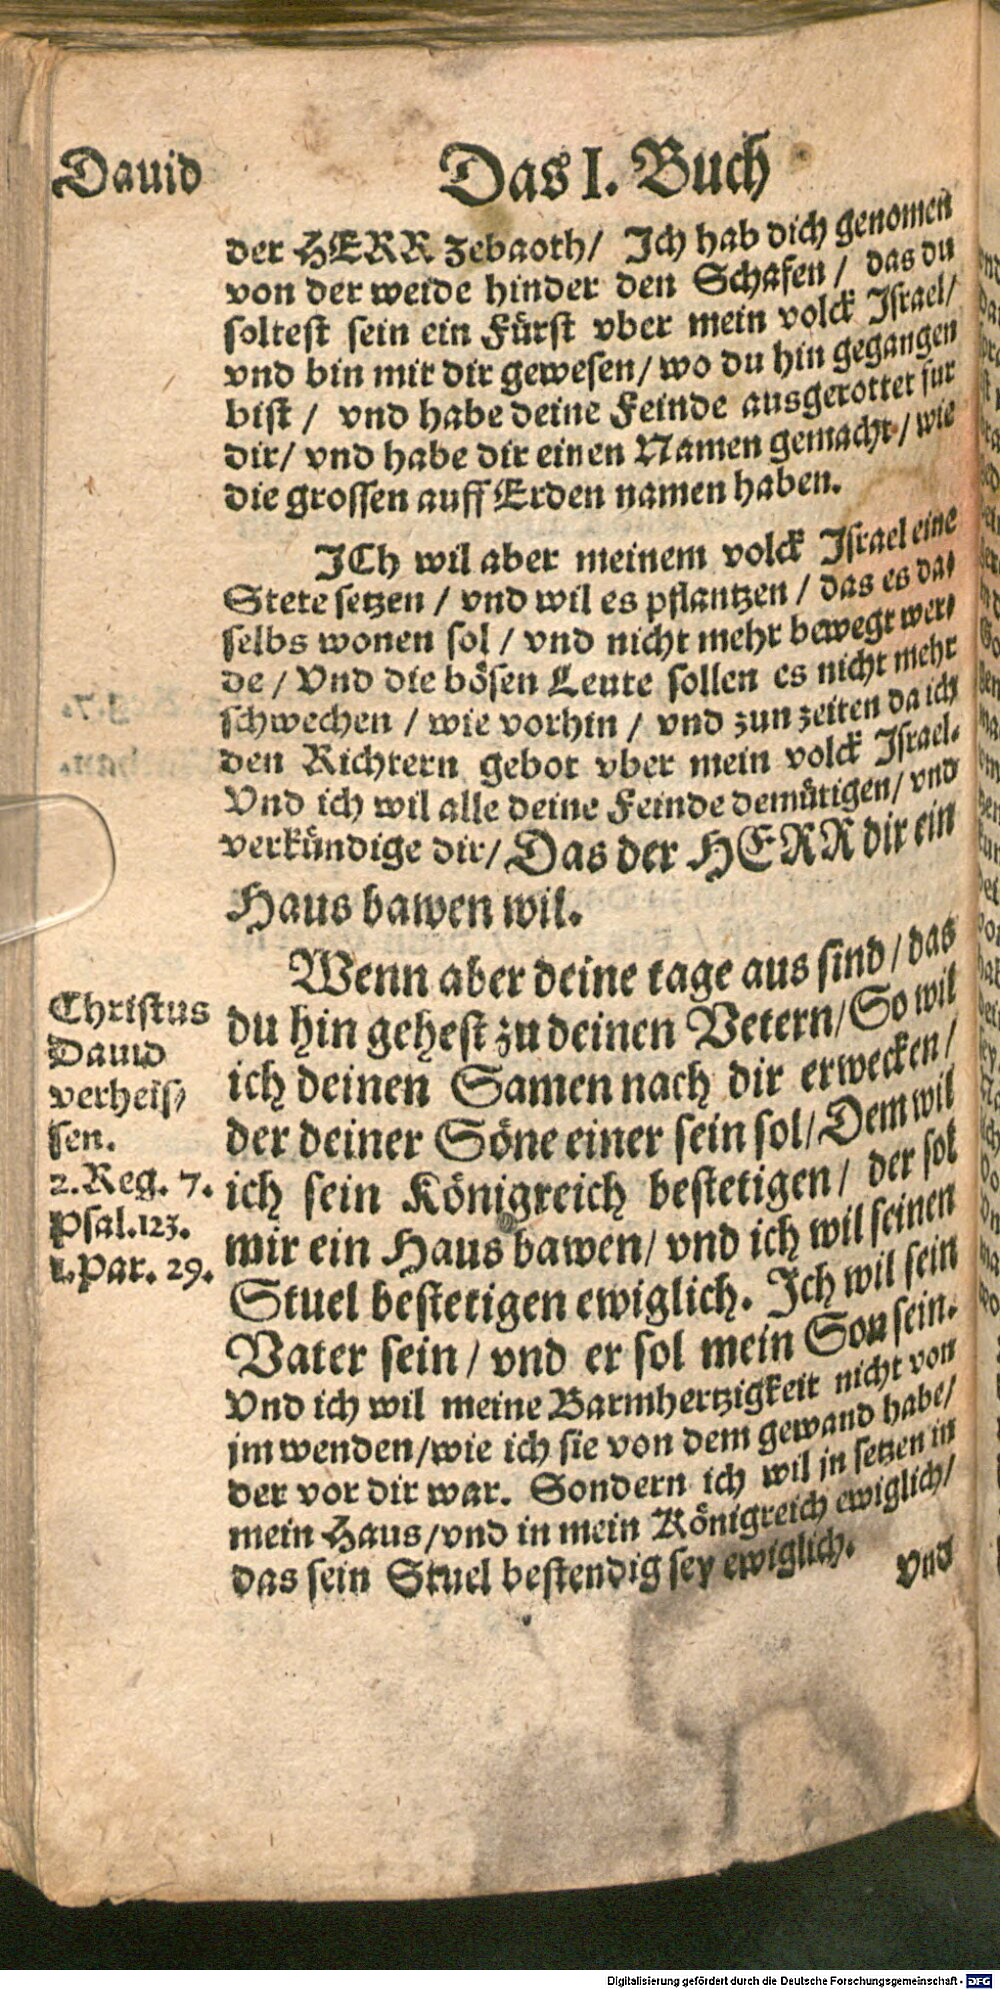 Dauid
Das I. Buch
der HERR Zebaoth/ Ich hab dich genomen
von der weide hinder den Schafen / das du
soltest sein ein Fürst vber mein volck Israel/
vnd bin mit dir gewesen/ wo du hin gegangen
bist / vnd habe deine Feinde ausgerottet fur
dir/ vnd habe dir einen Namen gemacht / wie
die grossen auff Erden namen haben.
ICh wil aber meinem volck Israel eine
Stete setzen / vnd wil es pflantzen / das es da⸗
selbs wonen sol / vnd nicht mehr bewegt wer⸗
de / Vnd die bösen Leute sollen es nicht mehr
schwechen / wie vorhin / vnd zun zeiten da ich
den Richtern gebot vber mein volck Israel.
Vnd ich wil alle deine Feinde demütigen/ vnd
verkündige dir/ Das der HERR dir ein
Haus bawen wil.
Wenn aber deine tage aus sind / das
du hin gehest zu deinen Vetern/ So wil
ich deinen Samen nach dir erwecken/
der deiner Söne einer sein sol/ Dem wil
ich sein Königreich bestetigen/ der sol
mir ein Haus bawen/ vnd ich wil seinen
Stuel bestetigen ewiglich. Ich wil sein
Vater sein / vnd er sol mein Son sein.
Vnd ich wil meine Barmhertzigkeit nicht von
jm wenden/wie ich sie von dem gewand habe/
der vor dir war. Sondern ich wil jn setzen in
mein Haus/vnd in mein Königreich ewiglich/
das sein Stuel bestendig sey ewiglich.
Vnd
Christus
Dauid
verheis⸗
sen.
2.Reg. 7.
Psal.123.
1.Par. 29.
Digitalisierung gefördert durch die Deutsche Forschungsgemeinschaft - DFG